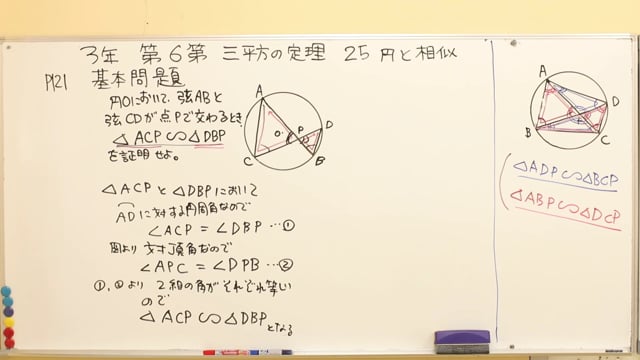 3年 第6第 三平方の定理 25 円と相似
P121 基本問題
円Oにおいて、弦ABと
弦CDが点Pで交わるとき、
△ACP∽△DBP
を証明せよ。
A
O
P
D
C
B
△ACPと△DBPにおいて
ADに対する円周角なので
∠ACP=∠DBP…①
図より 対頂角なので
∠APC=∠DPB…②
①,②より 2組の角がそれぞれ等しい
ので
△ACP∽△DBPとなる
A
D
P
B
C
△ADP∽△BCP
△ABP∽△DCP